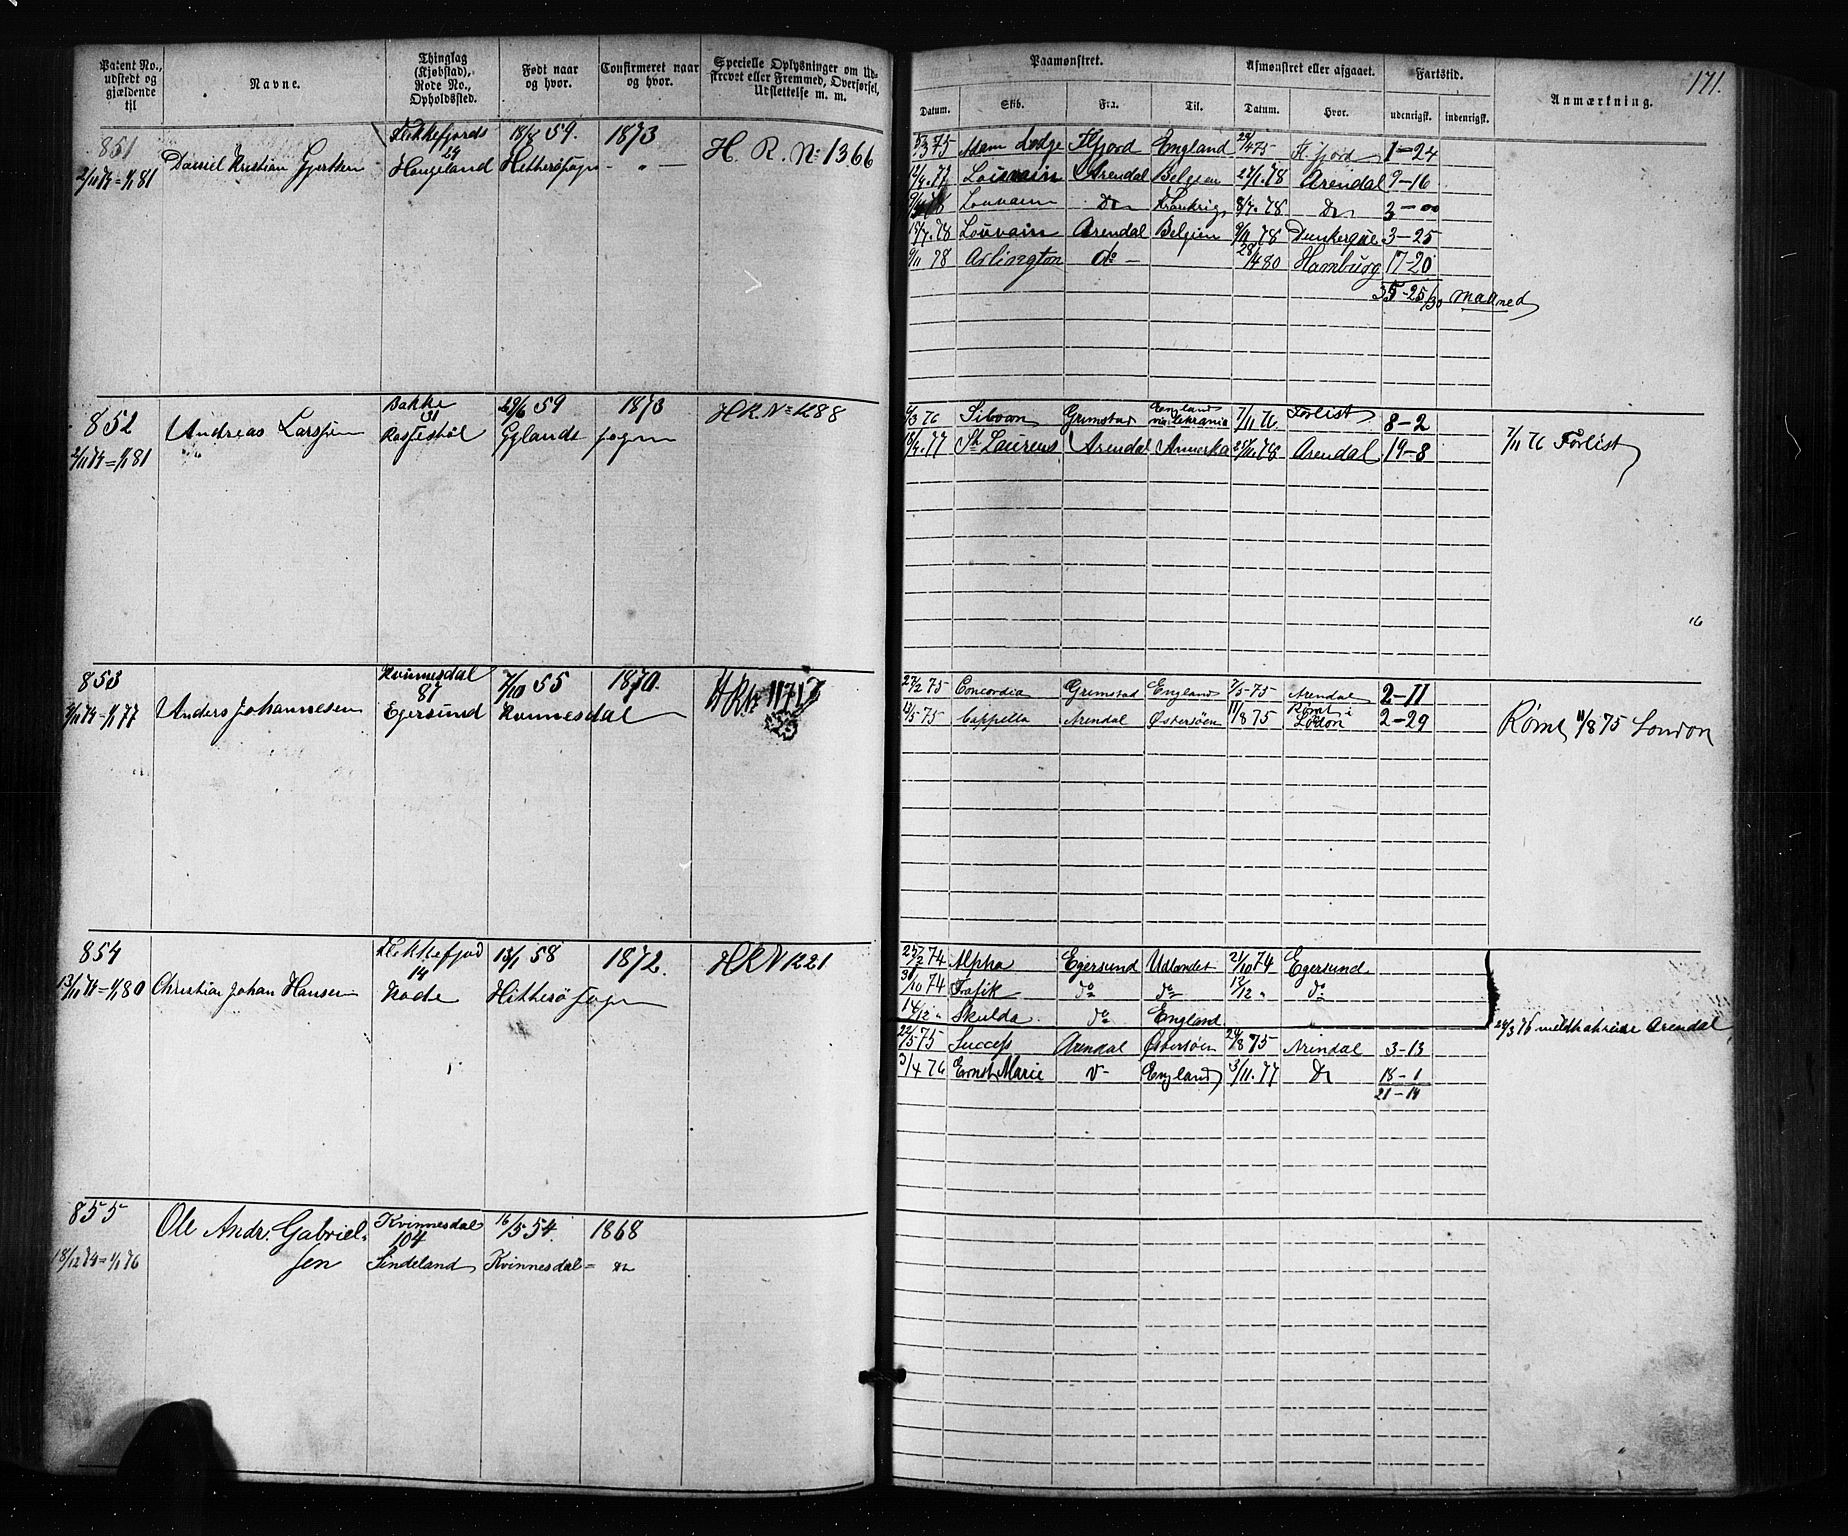 171.
Patent No., udstedt og gjældende til
Navne.
Thinglag (Kjøbstad), Rode No., Opholdssted.
Født naar og hvor.
Confirmeret naar og hvor.
Specielle Oplysninger om Udskrevet eller Fremmed, Overførsel, Udslettelse m. m.
Paamønstret.
Afmønstret eller afgaaet.
Fartstid.
Anmærkning.
Datum. Skib. Fra. Til. Datum. Hvor. udenrigsk. indenrigsk.
851 Flekkefjords 18/8 59. 1873 H. R. No 1366
2/11 74 = 1/1 81 Daniel Kristian Gjertsen 29 Haugeland Hitterøsogn - " -
5/3 75 Adam Lodge Fl fjord England 29/4 75 Fl fjord 1-24
12/4. 77 Louvain Arendal Belgien 28/1. 78 Arendal 9-16
Louvain Do Frankrig 8/7. 78 Do 3-00
15/7. 78 Louvain Arendal Belgien 9/11 78 Dunkerque 3-25
9/11 78 Arlington do - 28/4 80 Hamburg 17-20
35-25/30 maaned
852 Bakke 31 29/6 59 1873 H R. No 1288
2/11 74 = 1/1 81 Andreas Larssen Gylands sogn
6/3 76 Silvan Grimstad England 7/11 76 Forlist 8-2
18/4. 77 St Laurens Arendal Amerka 25/11 78 Arendal 19-8
7/11 76 Forlist
853 Kvinnesdal 87 7/10 55 1870. H R No 1171
3/11 74 - 1/1 77 Anders Johannesen Egersund Kvinnesdal
27/2 75 Concordia Grimstad England 7/5-75 Arendal 2-11
12/5-75 Cappella Arendal Østersøen 11/8 75 Rømt i London 2-29
Rømt 11/8 75 London
854 Flekkefjod 14 13/1 58 1872. H R N 1221
13/11 74 - 1/1 80 Christian Johan Hansen Rode Hitterø sogn
25/2 74 Alpha Egersund Udlandet 21/10 74 Egersund
30/10 74 Trafik do do 12/12 " do
14/12 " Skulda do England
22/5 75 Success Arendal Østersøen 24/8 75 Arendal 3-13
3/4 76 Ernst Marie D- England 3/11. 77 Do 18-1
21-14
24/3 76 meldt afreise Arendal
855 Kvinnesdal 104 16/5 54. 1868
18/12 74 = 1/1 76 Ole Andr. Gabrielsen Sindeland Kvinnesdal = do